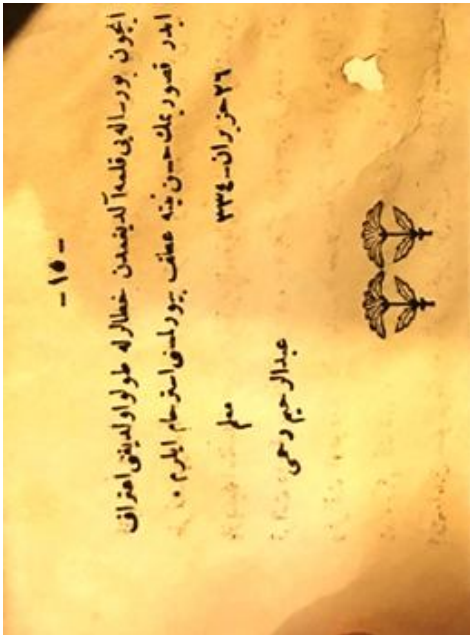 - ١٥ -
ایچون بو رساله یی قلمه آلدیغمدن خطالرله طولو اولدیغنی اعتراف
ایدر قصوریمك حسن نیته عطف بیورلمسنی استرحام ایلرم ٠
٢٦ حزیران - ٣٣٤
معلم
عبدالرحیم رحمی